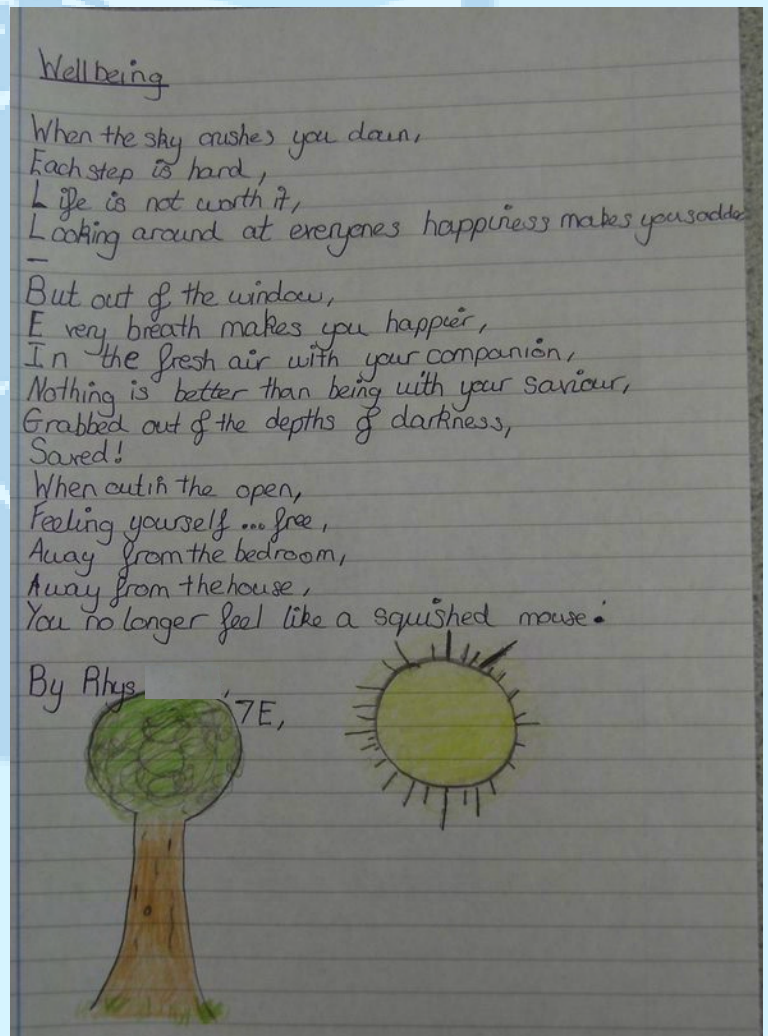 Wellbeing
When the sky crushes you down,
Each step is hard,
Life is not worth it,
Looking around at everyones happiness makes you sadder
–
But out of the window,
Every breath makes you happier,
In the fresh air with your companion,
Nothing is better than being with your saviour,
Grabbed out of the depths of darkness,
Saved!
When out in the open,
Feeling yourself ... free,
Away from the bedroom,
Away from the house,
You no longer feel like a squished mouse.
By Rhys
7E,